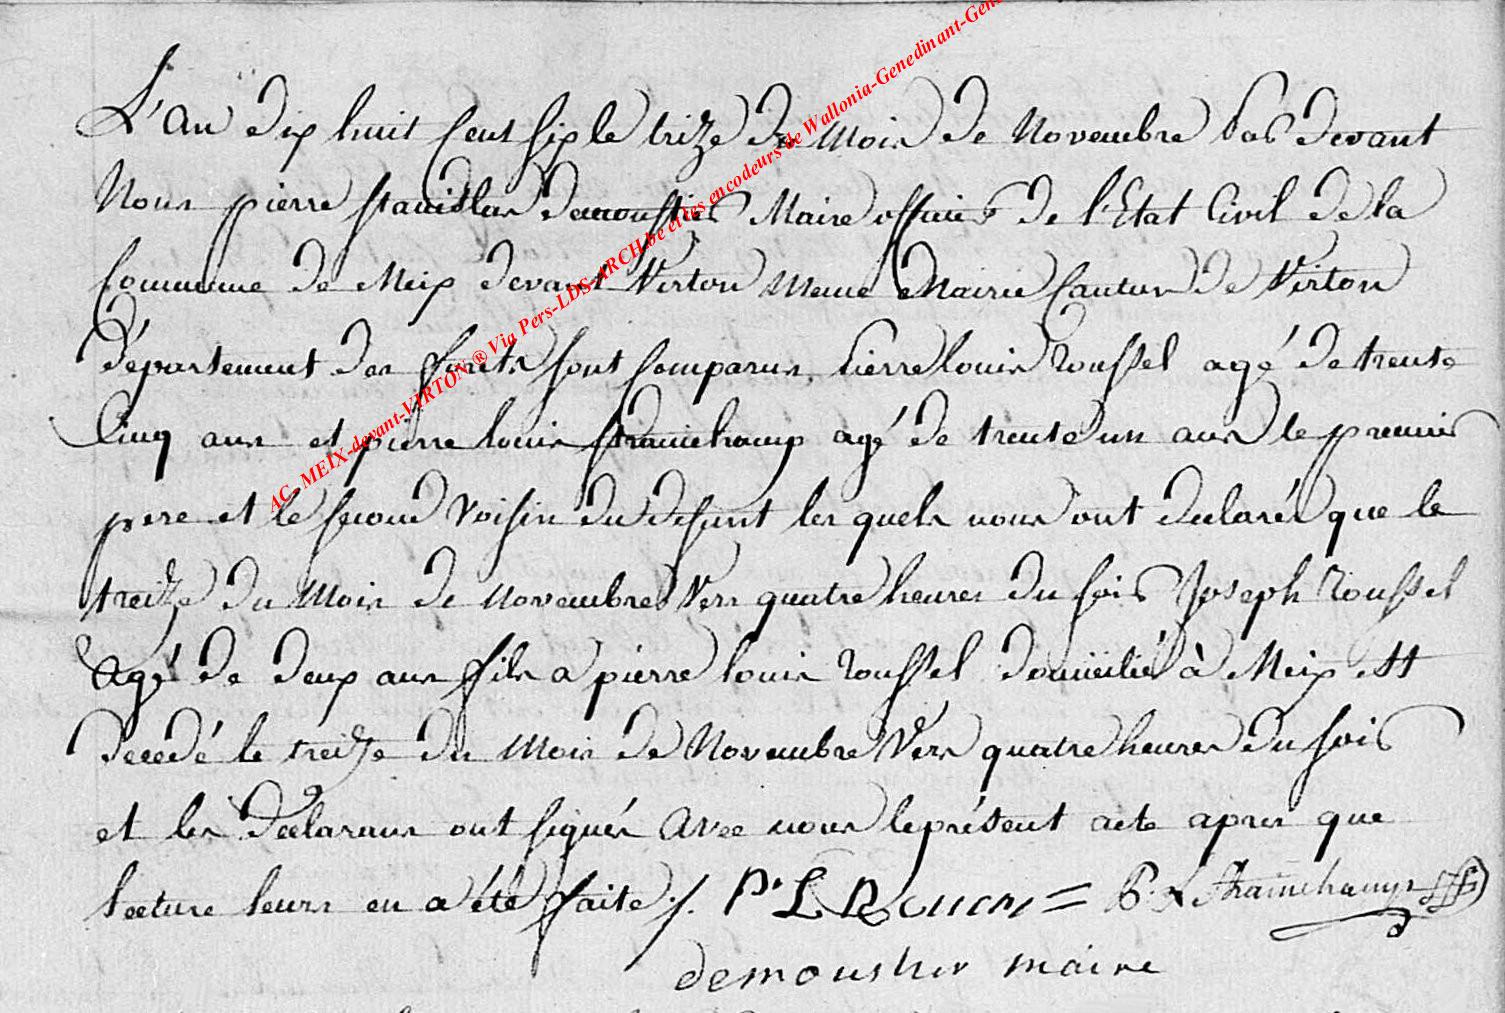 L'an dix huit cent six le trize du Mois de Novembre pas devant
Nous pierre stanislas demoustier Maire officier de l'Etat Civil de la
Commune de Meix devant Virton Meme Mairie Canton de Virton
Département des forets sont comparus Pierre louis roussel agé de trente
Cinq ans et pierre louis frainchamp agé de trente un ans le premier
pere et le second voisin du defunt les quels nous ont declarés que le
treize du Mois de Novembre Vers quatre heures du soir Joseph roussel
Agé de deux ans fils a pierre louis roussel domicilié à Meix est
decedé le treize du Mois de Novembre Vers quatre heures du soir
et les declarans ont signés avec nous le présent acte apres que
lecture leurs en a été faite ./. Pr L = P. L frainchamps
demoustier maire
AC. MEIX-devant-VIRTON ® Via Pers-LDS-ARCH.be et les encodeurs de Wallonia-Genedinant-Gen